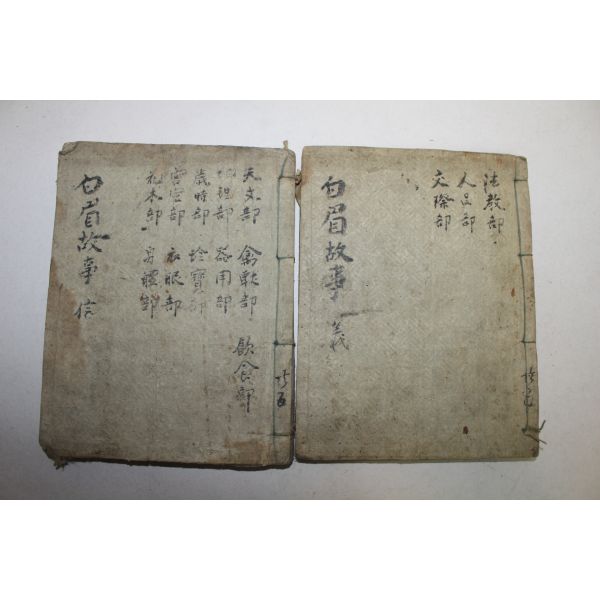 白眉故事 信
天文部 禽獸部 飲食部
地理部 器用部
歲時部 珍寶部
宮室部 衣服部
花木部 身體部
共五
白眉故事 義
法教部
人品部
交際部